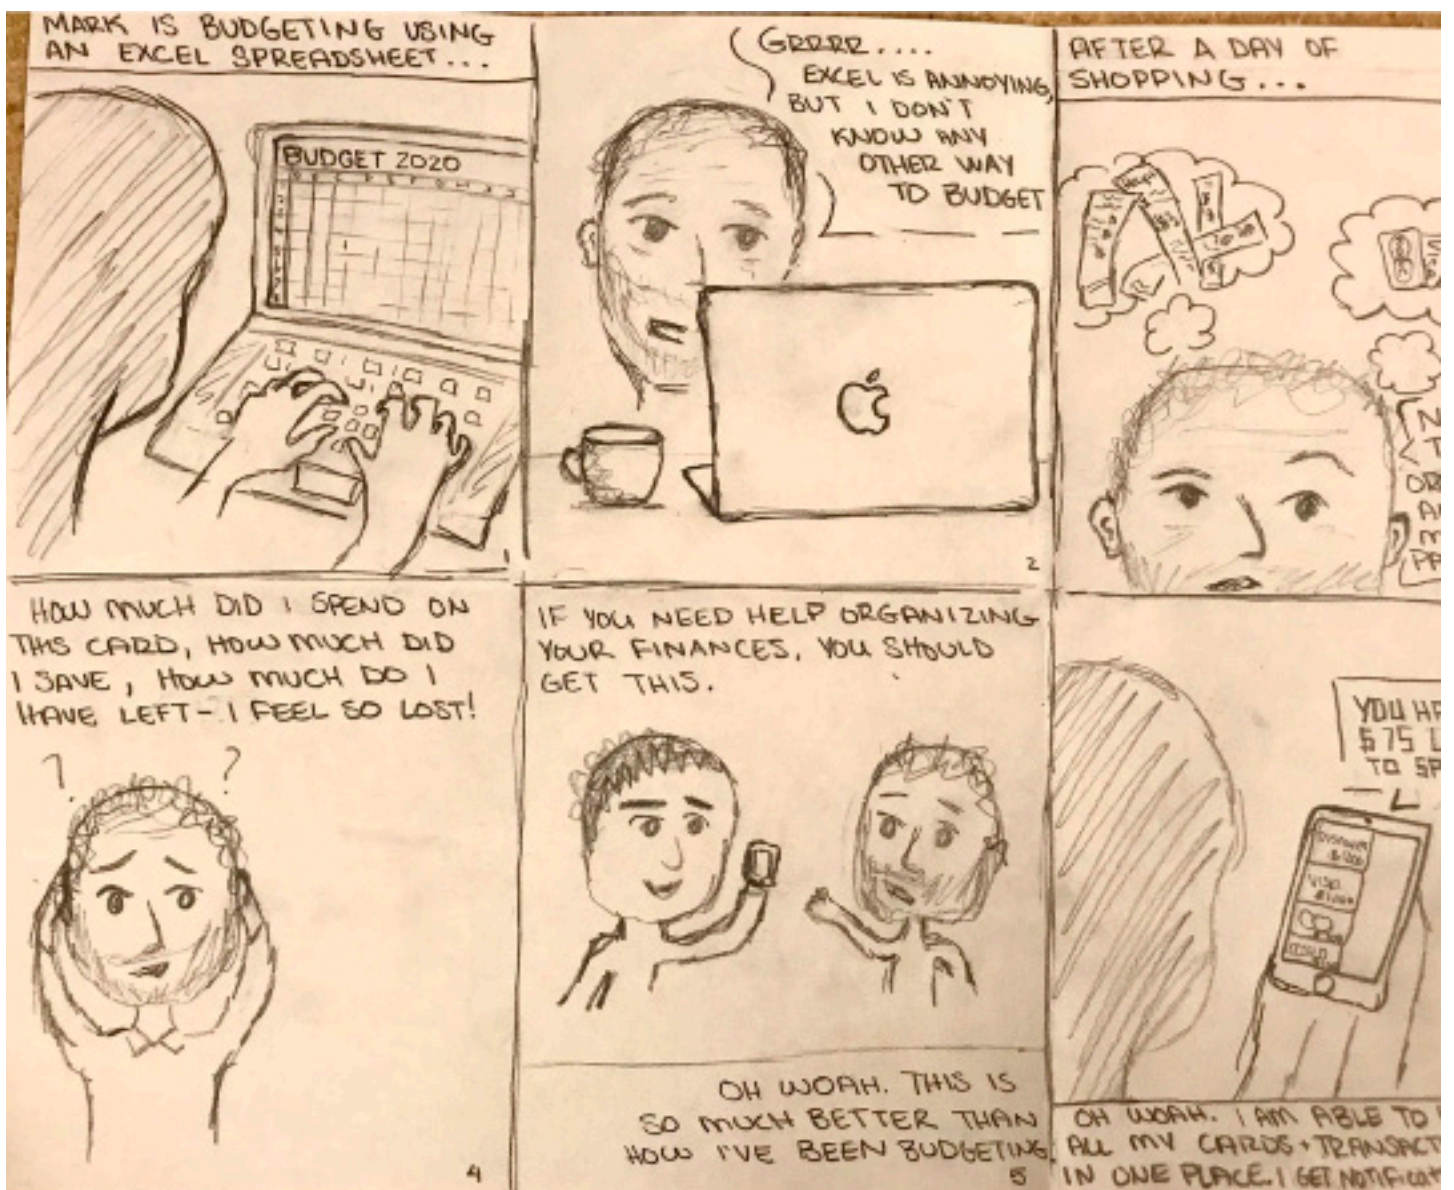 MARK IS BUDGETING USING
AN EXCEL SPREADSHEET...
BUDGET 2020
1
GRRRR....
EXCEL IS ANNOYING,
BUT I DON'T
KNOW ANY
OTHER WAY
TO BUDGET
2
AFTER A DAY OF
SHOPPING...
HOW MUCH DID I SPEND ON
THIS CARD, HOW MUCH DID
I SAVE, HOW MUCH DO I
HAVE LEFT - I FEEL SO LOST!
? ?
4
IF YOU NEED HELP ORGANIZING
YOUR FINANCES, YOU SHOULD
GET THIS.
OH WOAH. THIS IS
SO MUCH BETTER THAN
HOW I'VE BEEN BUDGETING.
5
YOU
$75
TO
VISA
OH WOAH. I AM ABLE TO
ALL MY CARDS +
IN ONE PLACE. I GET